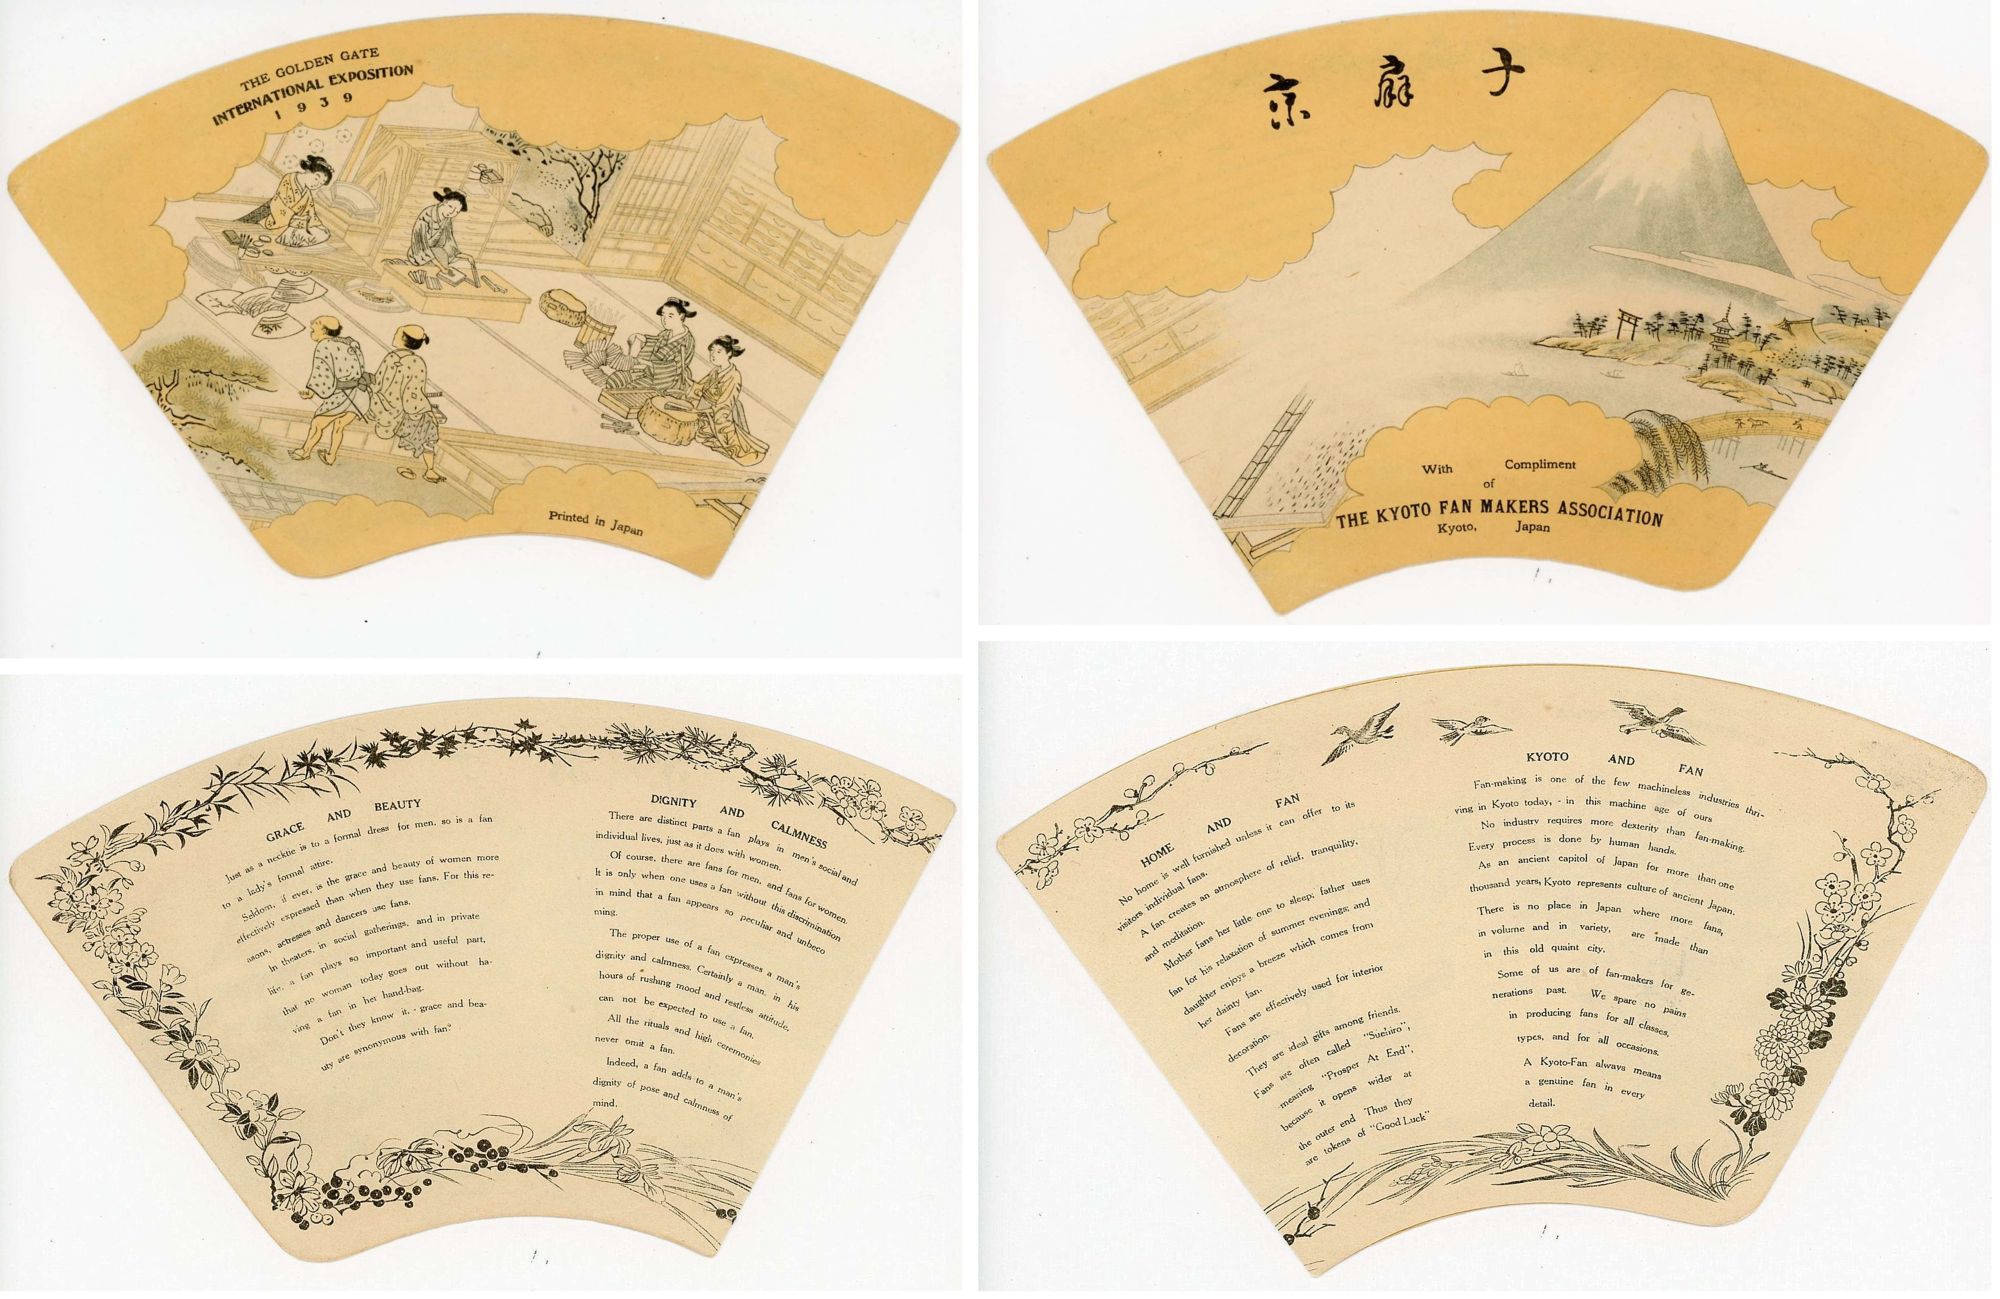 THE GOLDEN GATE
INTERNATIONAL EXPOSITION
1 9 3 9
Printed in Japan
京 扇 子
With Compliment
of
THE KYOTO FAN MAKERS ASSOCIATION
Kyoto, Japan
GRACE AND BEAUTY
Just as a necktie is to a formal dress for men, so is a fan
to a lady's formal attire.
Seldom, if ever, is the grace and beauty of women more
effectively expressed than when they use fans. For this re-
asons, actresses and dancers use fans.
In theaters, in social gatherings, and in private
life, a fan plays so important and useful part,
that no woman today goes out without ha-
ving a fan in her hand-bag.
Don't they know it, - grace and bea-
uty are synonymous with fan?
DIGNITY AND CALMNESS
There are distinct parts a fan plays in men's social and
individual lives, just as it does with women.
Of course, there are fans for men, and fans for women.
It is only when one uses a fan without this discrimination
in mind that a fan appears so peculiar and unbeco
ming.
The proper use of a fan expresses a man's
dignity and calmness. Certainly a man, in his
hours of rushing mood and restless attitude,
can not be expected to use a fan.
All the rituals and high ceremonies
never omit a fan.
Indeed, a fan adds to a man's
dignity of pose and calmness of
mind.
HOME AND FAN
No home is well furnished unless it can offer to its
visitors individual fans.
A fan creates an atmosphere of relief, tranquility,
and meditation.
Mother fans her little one to sleep; father uses
fan for his relaxation of summer evenings; and
daughter enjoys a breeze which comes from
her dainty fan.
Fans are effectively used for interior
decoration.
They are ideal gifts among friends.
Fans are often called "Suehiro",
meaning "Prosper At End",
because it opens wider at
the outer end Thus they
are tokens of "Good Luck"
KYOTO AND FAN
Fan-making is one of the few machineless industries thri-
ving in Kyoto today, - in this machine age of ours
No industry requires more dexterity than fan-making.
Every process is done by human hands.
As an ancient capitol of Japan for more than one
thousand years, Kyoto represents culture of ancient Japan.
There is no place in Japan where more fans,
in volume and in variety, are made than
in this old quaint city.
Some of us are of fan-makers for ge-
nerations past. We spare no pains
in producing fans for all classes,
types, and for all occasions.
A Kyoto-Fan always means
a genuine fan in every
detail.